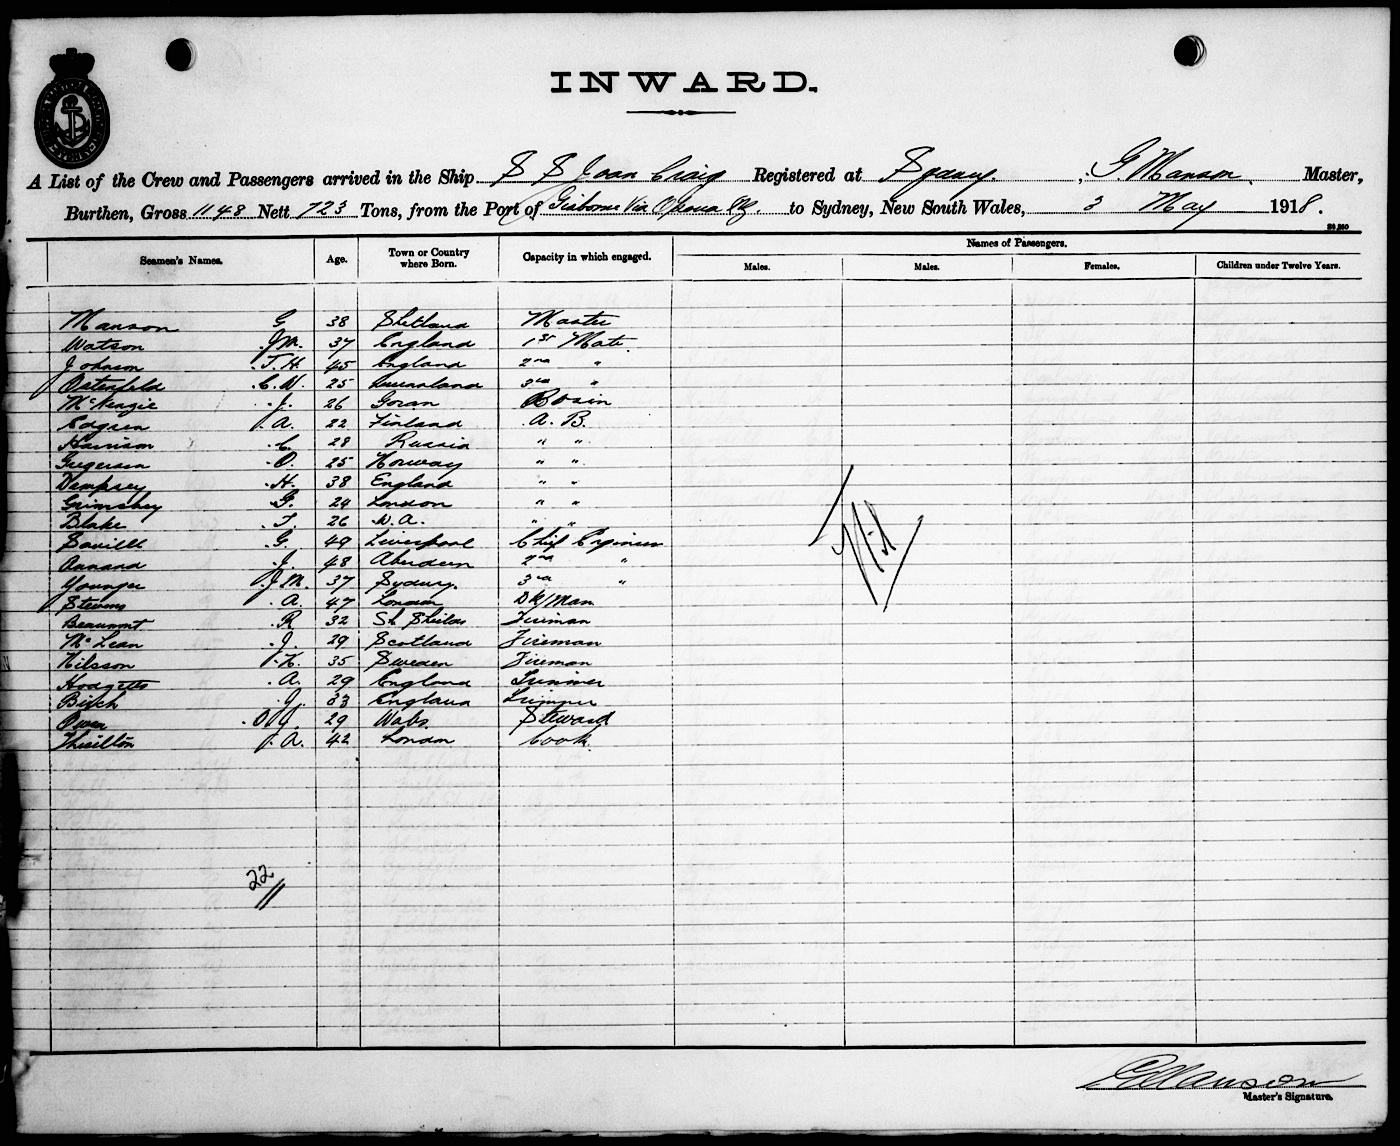 INWARD.
SYDNEY
A List of the Crew and Passengers arrived in the Ship S S Joan Craig Registered at Sydney, G. Manson Master,
Burthen, Gross 1148 Nett 723 Tons, from the Port of Gisborne Via NZ. to Sydney, New South Wales, 3 May 1918.
Seamen's Names. Age. Town or Country where Born. Capacity in which engaged. Names of Passengers.
Males. Males. Females. Children under Twelve Years.
Manson G 38 Shetland Master
Watson J.M. 37 England 1st Mate
Johnson T.H. 45 England 2nd "
Ostenfeld C.W. 25 Queensland 3rd "
McKenzie J. 26 Bosin
A. 22 Finland A. B.
Harrison C. 28 Russia " "
Gregersen O. 25 Norway " "
Dempsey H. 38 England " "
Grimsbey G. 24 London " "
Blake T. 26 W.A. " "
Saville G. 49 Liverpool Chief Engineer
Annand J. 48 Aberdeen 2nd "
Younger J.M. 37 Sydney. 3rd "
Stevens A. 47 London Dk/Man
Beaumont R 32 Sth Shields Fireman
McLean J. 29 Scotland Fireman
Nilsson K. 35 Sweden Fireman
Hodgetts A. 29 England Trimmer
Birch J. 33 England Trimmer
Owen O J. 29 Wales Steward
A. 42 London Cook
Nil
22
G Manson
Master's Signature.